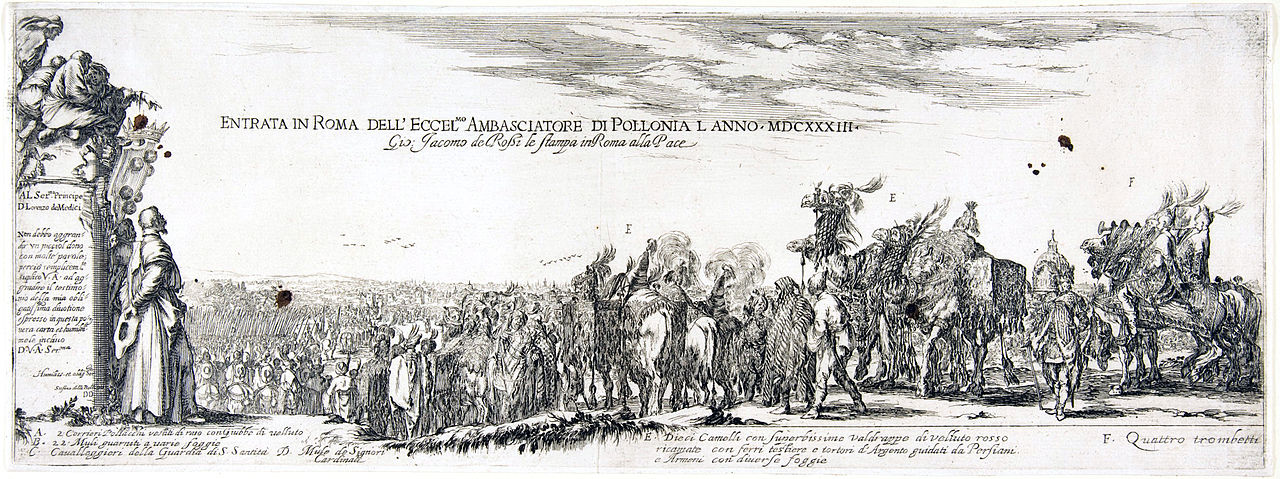 ENTRATA IN ROMA DELL' ECCEL.MO AMBASCIATORE DI POLLONIA L ANNO · MDCXXXIII ·
Gio: Jacomo de Rossi le stampa in Roma alla Pace
E
E
F
AL Ser.mo Principe
D Lorenzo de Medici
Non debbo aggran-
dir un picciol dono
con molte parole;
perciò semplicem.te
suplico V. A. ad ag-
gradire il testimo-
nio della mia obli-
gatissima divotione
espresso in questa po-
vera carta et humilm.te
D. V. A. Ser.ma
A. 2 Corrieri Pollacchi vestiti di raso con Giubbe di velluto
B. 22 Muli guarniti a varie foggie
C. Cavalleggieri della Guardia di S. Santità D. Mule de Signori
Cardinali
E Dieci Camelli con superbissime Valdrappe di velluto rosso
ricamate con ferri testiere e tortori d'Argento guidati da Persiani
e Armeni con diverse foggie
F. Quattro trombetti